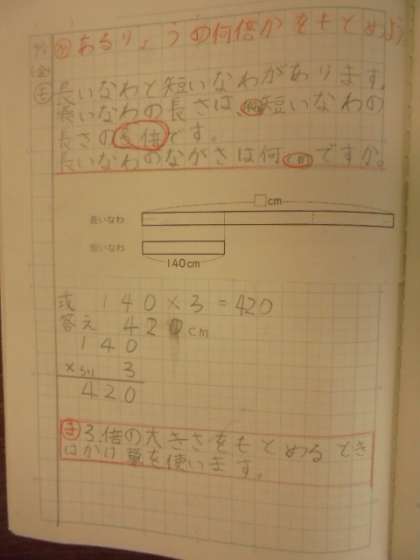 あるりょうの何倍かをもとめよう
長いなわと短いなわがあります。
長いなわの長さは、短いなわの
長さの3倍です。
長いなわのながさは何cmですか。
□cm
長いなわ
短いなわ
140cm
式 140×3=420
答え 420cm
140
× 3
420
ま 3倍の大きさをもとめるとき
はかけ算を使います。